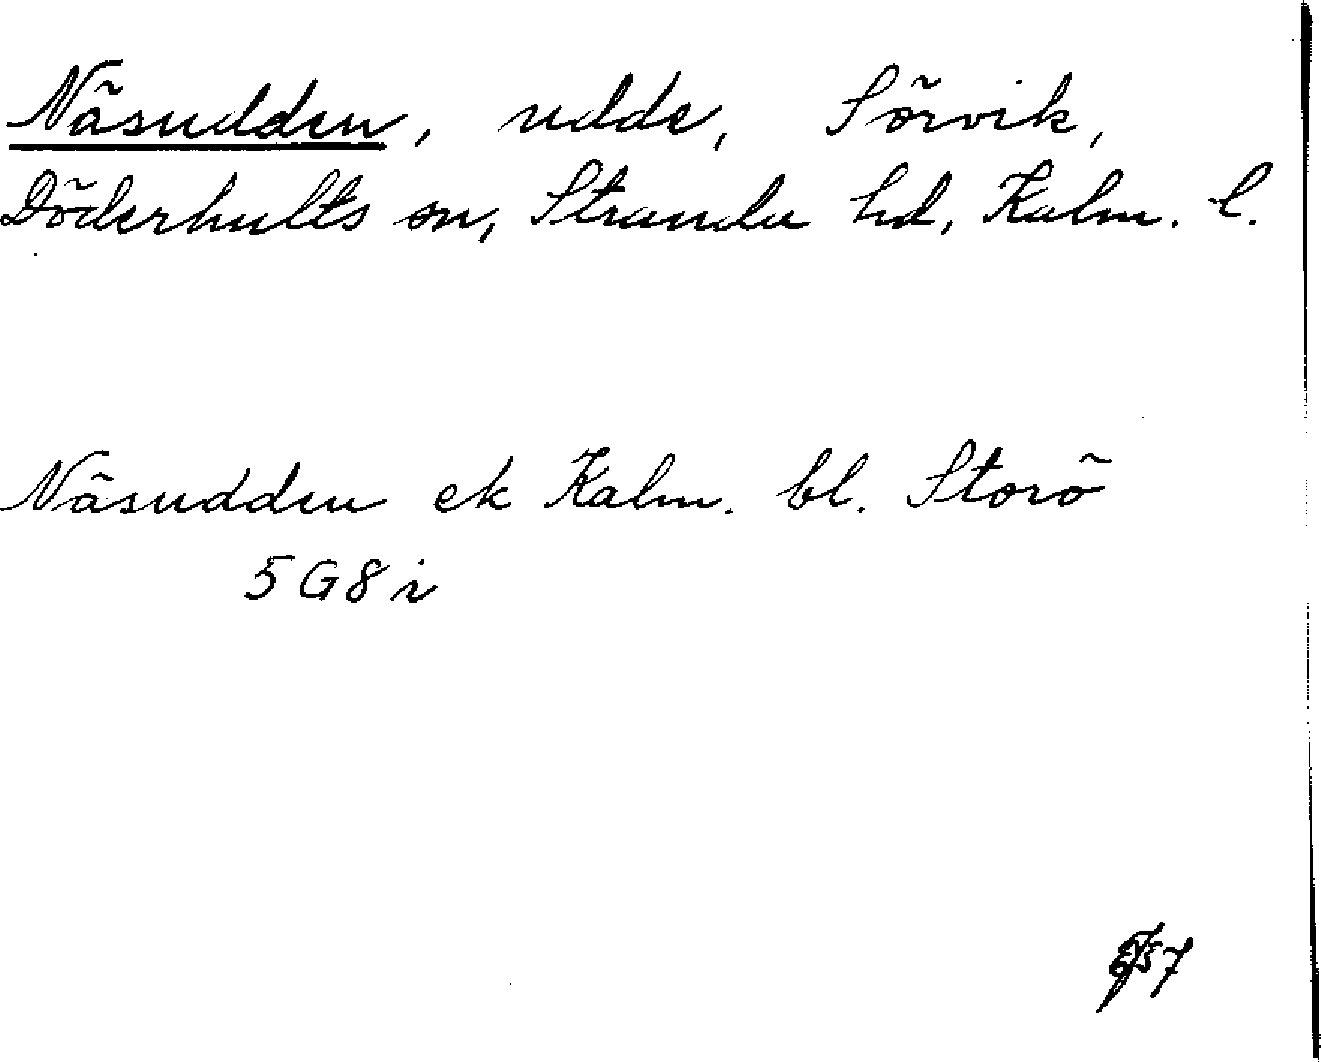 Näsudden, udde, Sörvik,
Döderhults sn, Stranda hd, Kalm. l.
Näsudden ek Kalm. bl. Storö
5 G 8 i